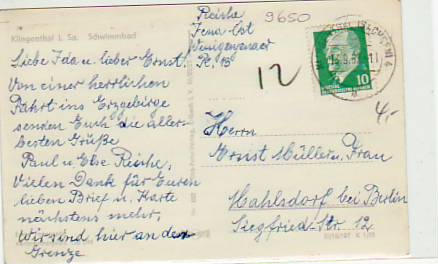 Klingenthal i. Sa. Schwimmbad
Reiche
Jena-Ost
Wenigenjenaer
Str. 15
9650
12
Liebe Ida u. lieber Ernst!
Von einer herrlichen
Fahrt ins Erzgebirge
senden Euch die aller-
besten Grüße
Paul u. Else Reiche.
Vielen Dank für Euren
lieben Brief u. Karte
nächstens mehr.
Wir sind hier an der
Grenze
10
4,-
Herrn
Ernst Müller u. Frau
Mahlsdorf bei Berlin
Siegfried-Str. 12